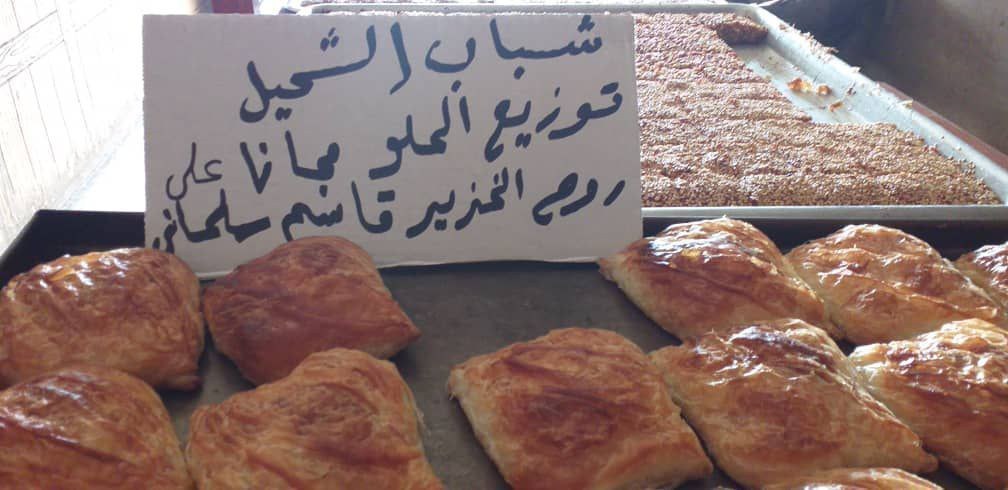 شباب الشحيل
توزيع الحلو مجانا على
روح الخنزير قاسم سلماني